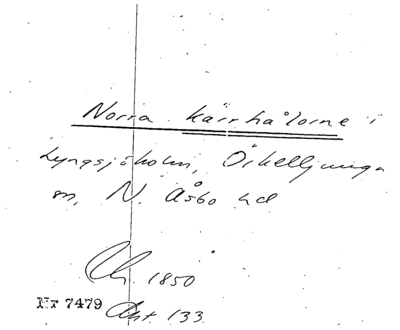 Norra Kärrhålorne i
Lyngsjöholm, Örkelljunga
sn, N. Åsbo hd
Ch. 1850
Nr 7479 Akt. 133.